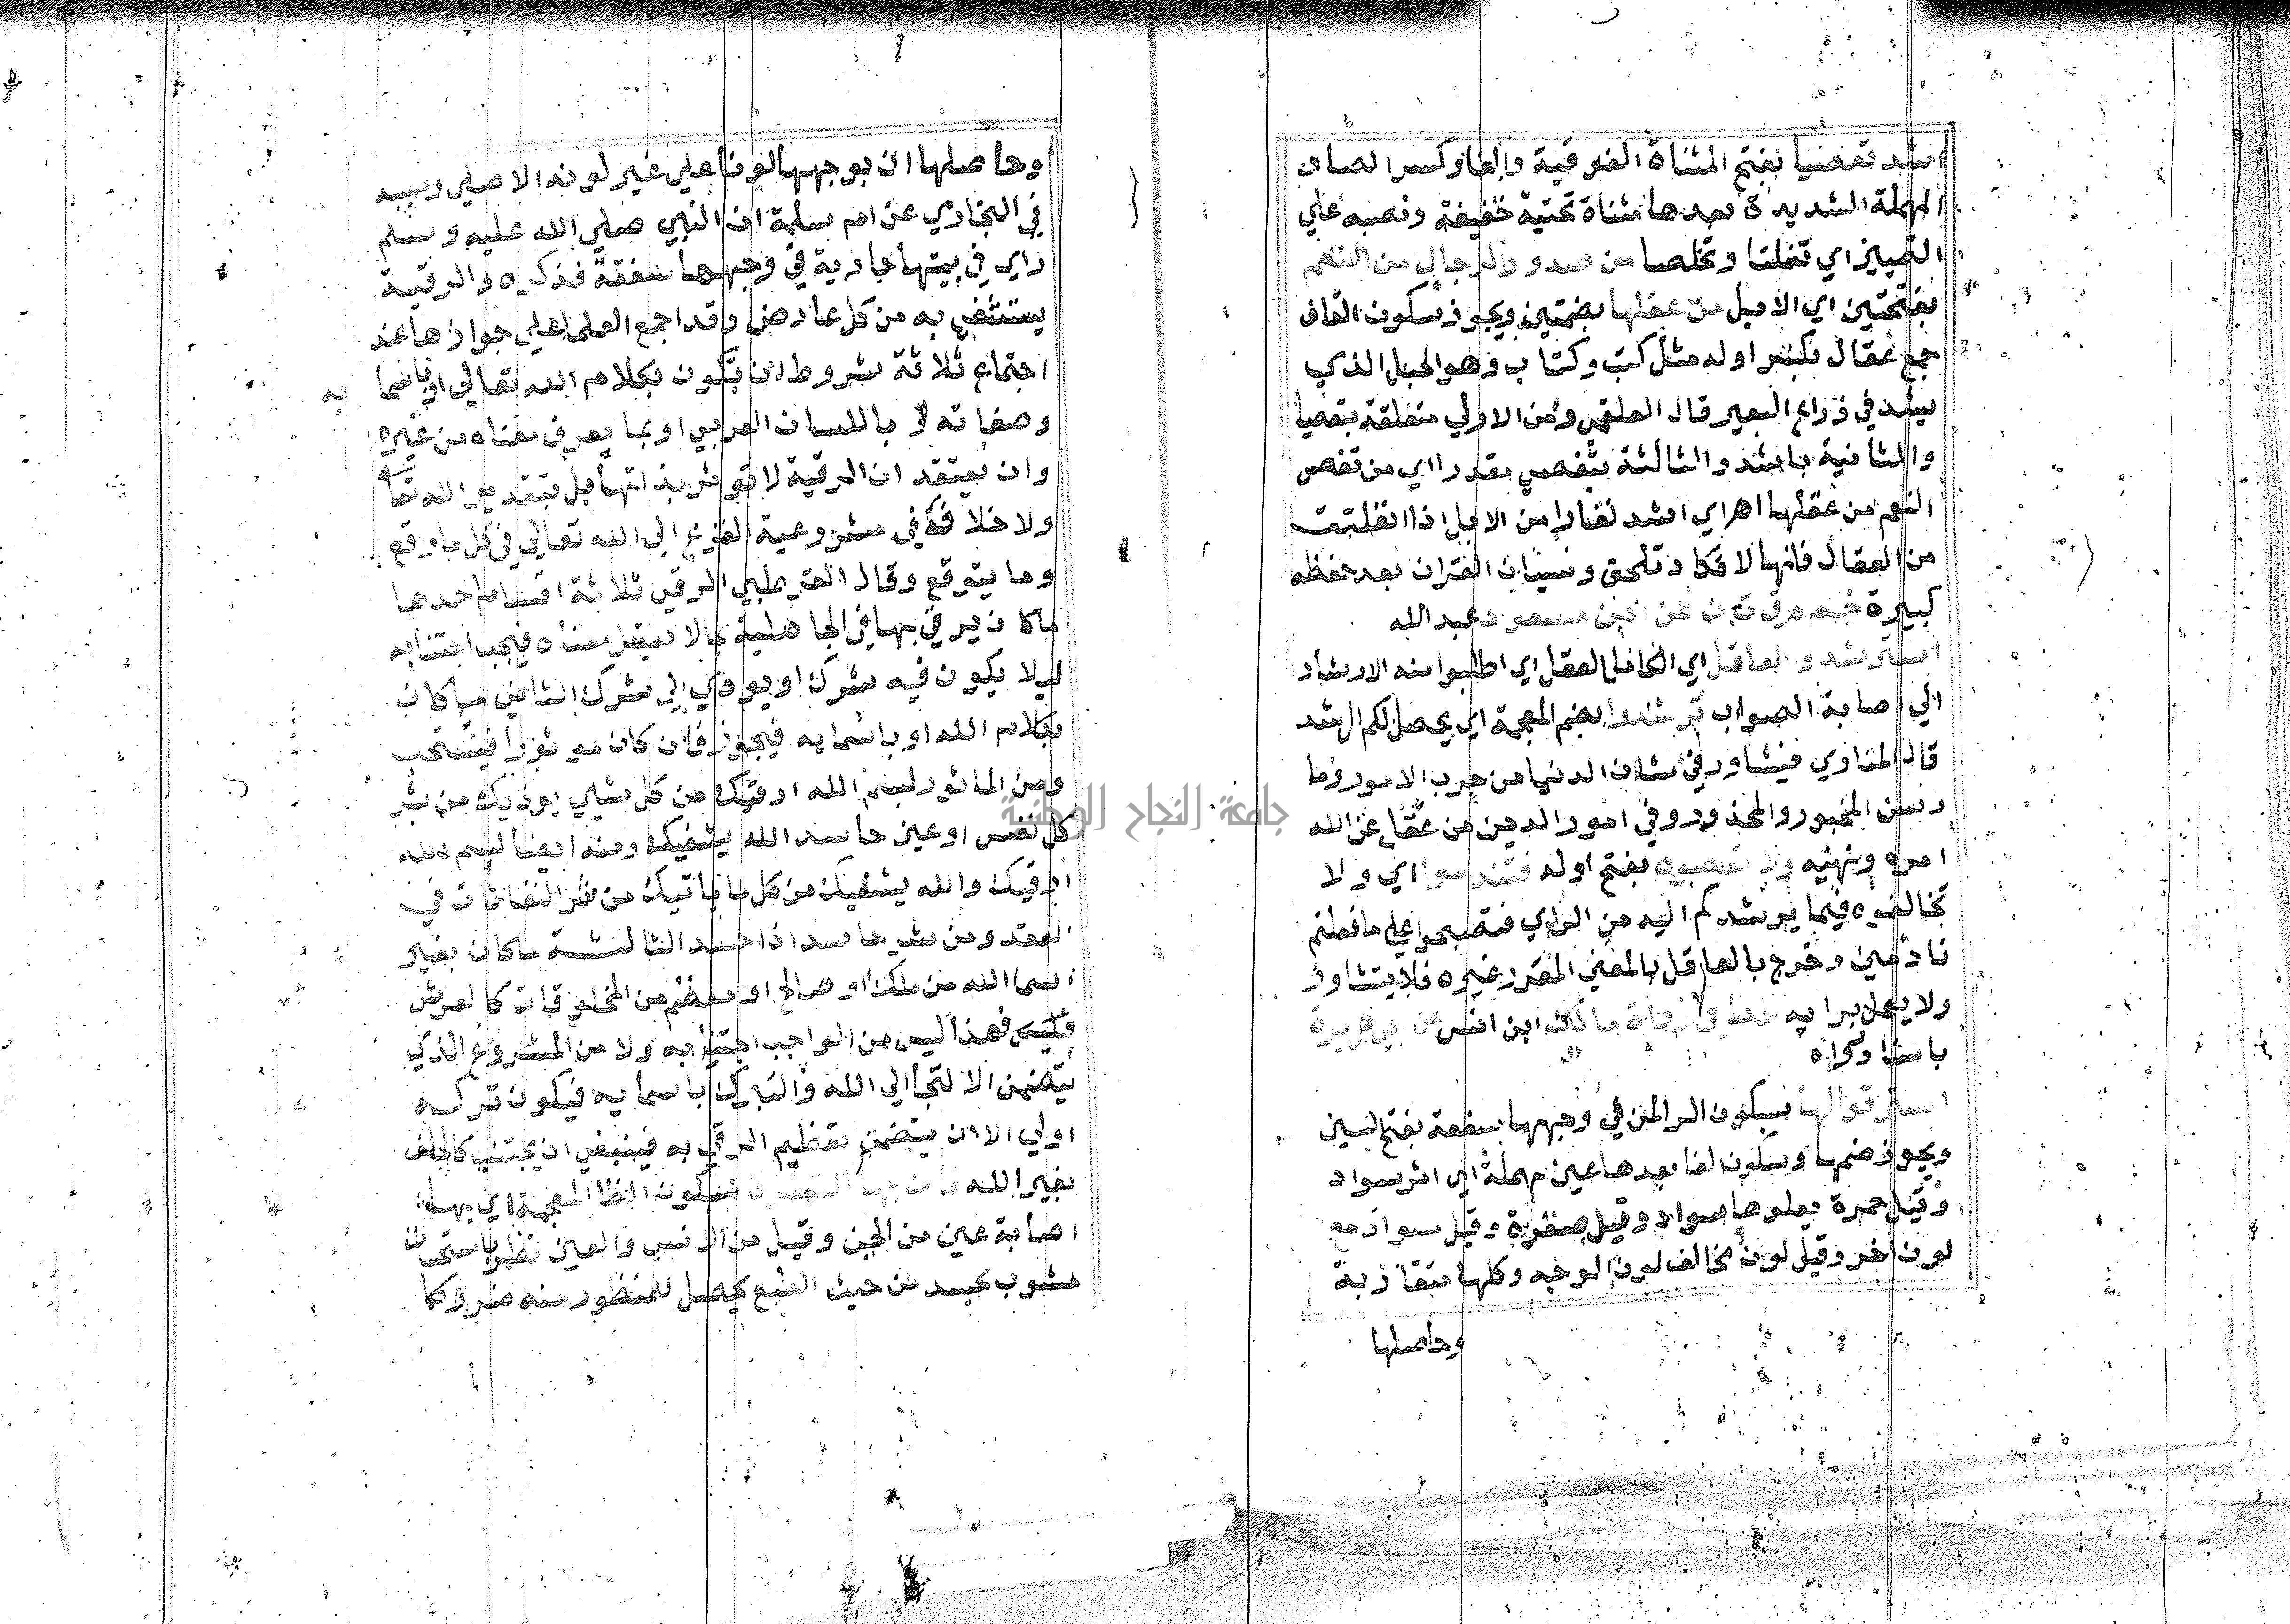 اشد تفصيا بفتح المثناة الفوقية والفا وكسر الصاد
المهملة الشديدة بعدها مثناة تحتية خفيفة ونصبه علي
التمييز اي تفلتا وتخلصا من صدور الرجال من النعم
بفتحتين اي الابل من عقلها بضمتين ويجوز سكون القاف
جمع عقال بكسر اوله مثل كتب وكتاب وهو الحبل الذي
يشد في ذراع البعير قال العلقمي ومن الاولي متعلقة بتفصيا
والثانية باشد والثالثة بتفصي مقدرا اي من تفصي
النعم من عقلها اهر اي اشد نفارا من الابل اذا انفلتت
من العقال فانها لا تكاد تلحق ونسيان القران بعد حفظه
كبيرة حم ق ت ن عن ابن مسعود عبد الله
استرشدوا العاقل اي الكامل العقل اي اطلبوا منه الارشاد
الي اصابة الصواب ترشدوا بضم المعجمة اي يحصل لكم الرشد
قال المناوي فيشاور في شان الدنيا من جرب الامور وما
رس المخبور والمحذور وفي امور الدين من عقل عن الله
امره ونهيه ولا تعصوه بفتح اوله فتندموا اي ولا
تخالفوه فيما يرشدكم اليه من الراي فتصبحوا علي ما فعلتم
نادمين وخرج بالعاقل بالمعني المقرر غيره فلا يتشاور
ولا يعمل برايه خط في رواة مالك ابن انس عن ابي هريرة
باسناد واه
استرقوا لها بسكون الرا لمن في وجهها سفعة بفتح السين
ويجوز ضمها وسكون الفا بعدها عين مهملة اي اثر سواد
وقيل حمرة يعلوها سواد وقيل صفرة وقيل سواد مع
لون اخر وقيل لون مخالف لون الوجه وكلها متقاربة
وحاصلها
وحاصلها ان بوجهها لونا علي غير لونه الاصلي وسببه
في البخاري عن ام سلمة ان النبي صلي الله عليه وسلم
راي في بيتها جارية في وجهها سفعة فذكره والرقية
يستشفي به من كل عارض وقد اجمع العلما علي جوازها عند
اجتماع ثلاثة شروط ان تكون بكلام الله تعالي او باسما يه
وصفاته و باللسان العربي او بما يعرف معناه من غيره
وان يعتقد ان الرقية لا تؤثر بذاتها بل بتقدير الله تعا
ولا خلاف في مشروعية الفزع الي الله تعالي في كل ما وقع
وما يتوقع وقال القرطبي الرقي ثلاثة اقسام احدها
ما كان يرقي بها في الجاهلية مما لا يعقل معناه فيجب اجتنابه
ليلا يكون فيه شرك او يودي الي شرك الثاني ما كان
بكلام الله او باسمايه فيجوز فان كان موثورا فيستحب
ومن الماثور لبسم الله ارقيك من كل شيي يوذيك من شر
كل نفس او عين حاسد الله يشفيك ومنه ايضا لبسم الله
ارقيك والله يشفيك من كل ما ياتيك من شر النفاثات في
العقد ومن شر حاسد اذا حسد الثالثة ما كان بغير
اسما الله من ملك او صالح او معظم من المخلوقات كالعرش
فهذا ليس من الواجب اجتنابه ولا من المشروع الذي
يتضمن الالتجا الي الله والتبرك باسمايه فيكون تركه
اولي الا ان يتضمن تعظيم المرقي به فينبغي ان يجتنب كالحلف
بغير الله فان بها النظرة بسكون الظا المعجمة اي بها
اصابة عين من الجن وقيل من الانس والعين نظر باستحسان
مشوب بحسد من حيث الطبع يحصل للمنظور منه ضرر كما
جامعة النجاح الوطنية